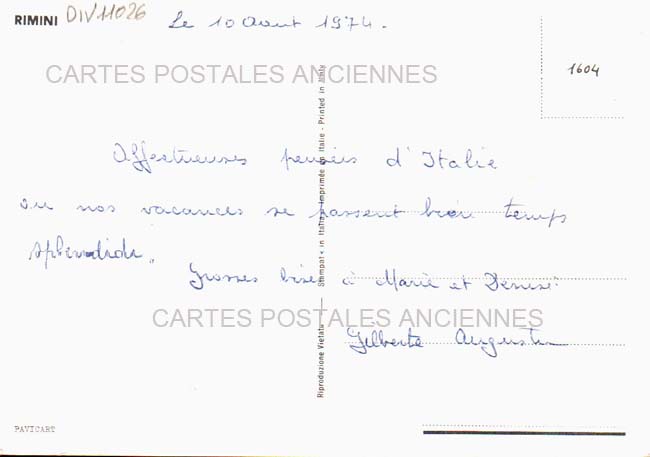 RIMINI DIV11026 Le 10 Aout 1974.
1604
CARTES POSTALES ANCIENNES
Affectueuses pensées d'Italie
ou nos vacances se passent bien temps
splendide.
Grosses bises à Marie et Denise
CARTES POSTALES ANCIENNES
Gilberte Augustin
Riproduzione Vietata — Stampato in Italia - Imprimée en Italie - Printed in Italy
PAVICART